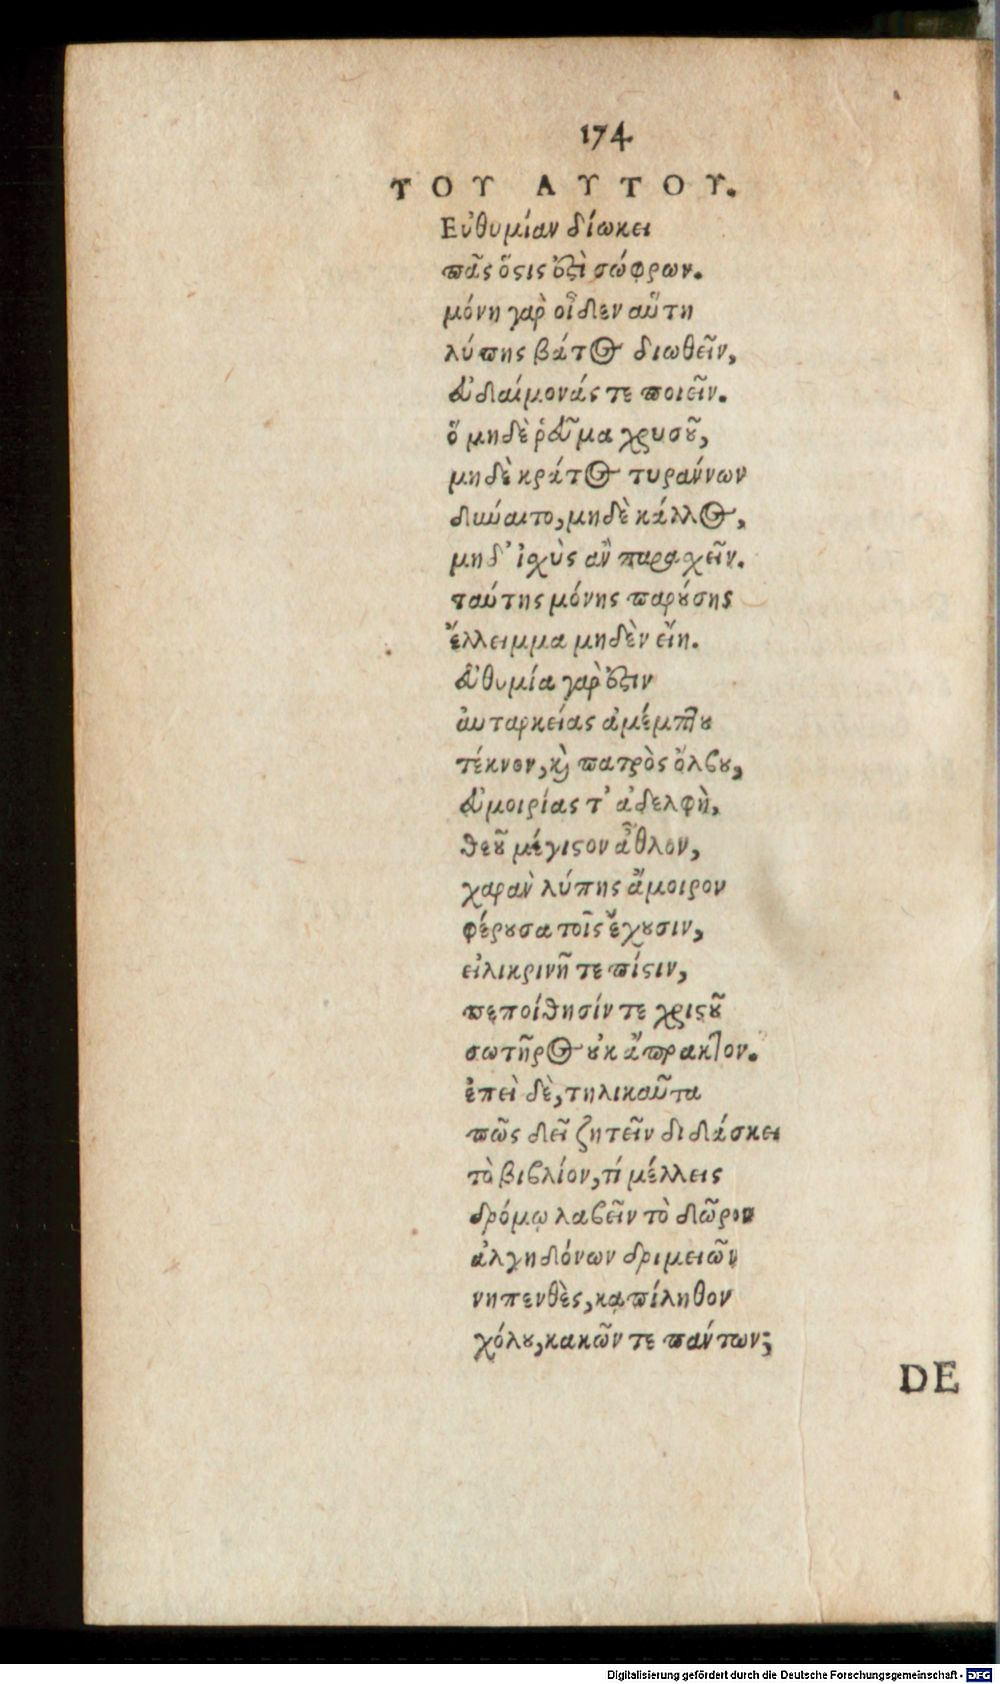 174
ΤΟΥ ΑΥΤΟΥ.
Εὐθυμίαν δίωκει
πᾶς ὅςις ὀξὶ σώφρων.
μόνη γαρ̀ οἶδεν αὕτη
λύπης βάτος διωθεῖν,
εὐδαίμονάς τε ποιεῖν.
ὅ μηδὲ ῥεῦμα χρυσοῦ,
μηδὲ κράτος τυράννων
δύναιτο, μηδὲ κάλλος,
μηδ' ἰχὺς ἂν παραχεῖν.
ταύτης μόνης παρούσης
ἔλλειμμα μηδὲν εἴη.
εὐθυμία γαρ̀ ὀξιν
ἀυταρκείας ἀμέμπτου
τέκνον, καὶ πατρὸς ὄλβου,
εὐμοιρίας τ' ἀδελφὴ,
θεοῦ μέγιςον ἆθλον,
χαρὰν λύπης ἄμοιρον
φέρουσα τοῖς ἔχουσιν,
εἰλικρινῆ τε πίςιν,
πεποίθησίν τε χριςοῦ
σωτῆρος οὐκ ἄπρακτον.
ἐπεὶ δὲ, τηλικαῦτα
πῶς δεῖ ζητεῖν διδάσκει
τὸ βιβλίον, τί μέλλεις
δρόμῳ λαβεῖν τὸ δῶρον
ἀλγηδόνων δριμειῶν
νηπενθὲς, κᾳπίληθον
χόλου, κακῶν τε πάντων;
DE
Digitalisierung gefördert durch die Deutsche Forschungsgemeinschaft - DFG